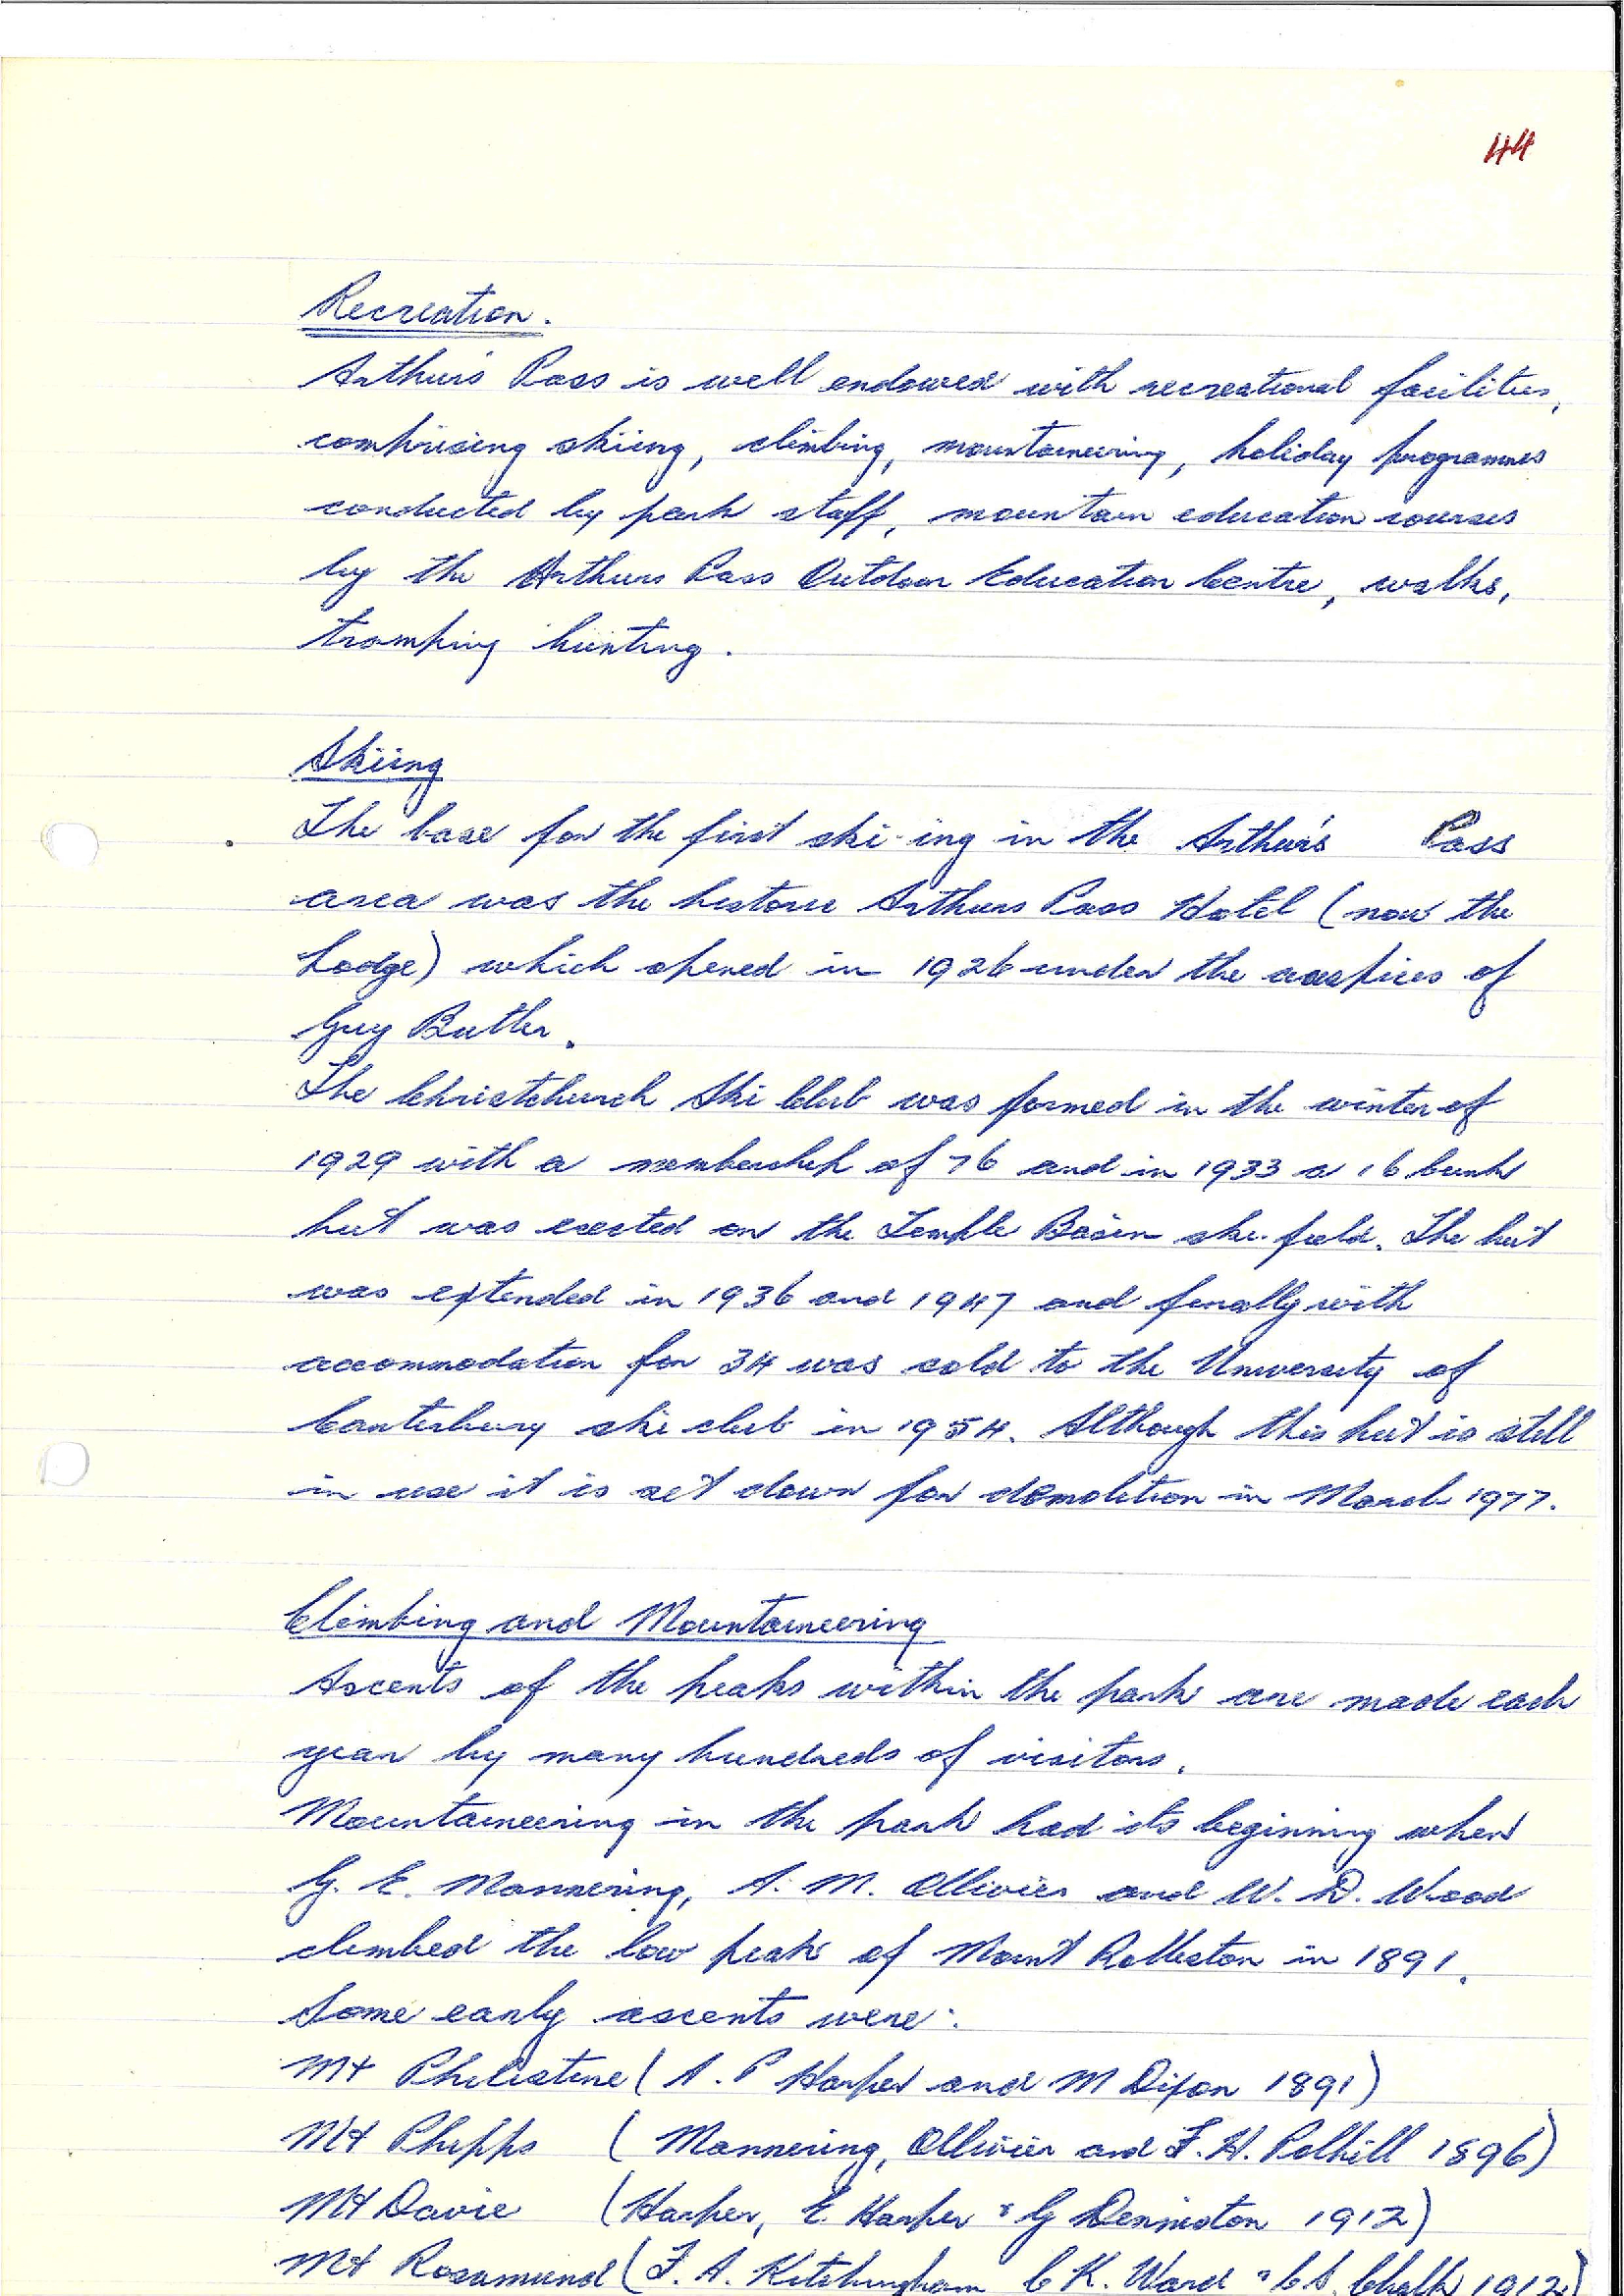 44
Recreation.
Arthurs Pass is well endowed with recreational facilities,
comprising skiing, climbing, mountaineering, holiday programmes
conducted by park staff, mountain education courses
by the Arthurs Pass Outdoor Education Centre, walks,
tramping hunting.
Skiing
The base for the first ski-ing in the Arthur's Pass
area was the historic Arthurs Pass Hotel (now the
Lodge) which opened in 1926 under the auspices of
Guy Butler.
The Christchurch Ski Club was formed in the winter of
1929 with a membership of 76 and in 1933 a 16 bunk
hut was erected on the Temple Basin ski-field. The hut
was extended in 1936 and 1947 and finally with
accommodation for 34 was sold to the University of
Canterbury ski club in 1954. Although this hut is still
in use it is set down for demolition in March 1977.
Climbing and Mountaineering
Ascents of the peaks within the park are made each
year by many hundreds of visitors.
Mountaineering in the park had its beginning when
G. E. Mannering, A. M. Ollivier and W. D. Wood
climbed the low peak of Mount Rolleston in 1891.
Some early ascents were:
Mt Philistine (A. P Harper and M Dixon 1891)
Mt Phipps (Mannering, Ollivier and F. H. Polhill 1896)
Mt Davie (Harper, E. Harper & G Denniston 1912)
Mt Rosamund (F. A. Kitchingham C K. Ward & C S. Chalk 1912)